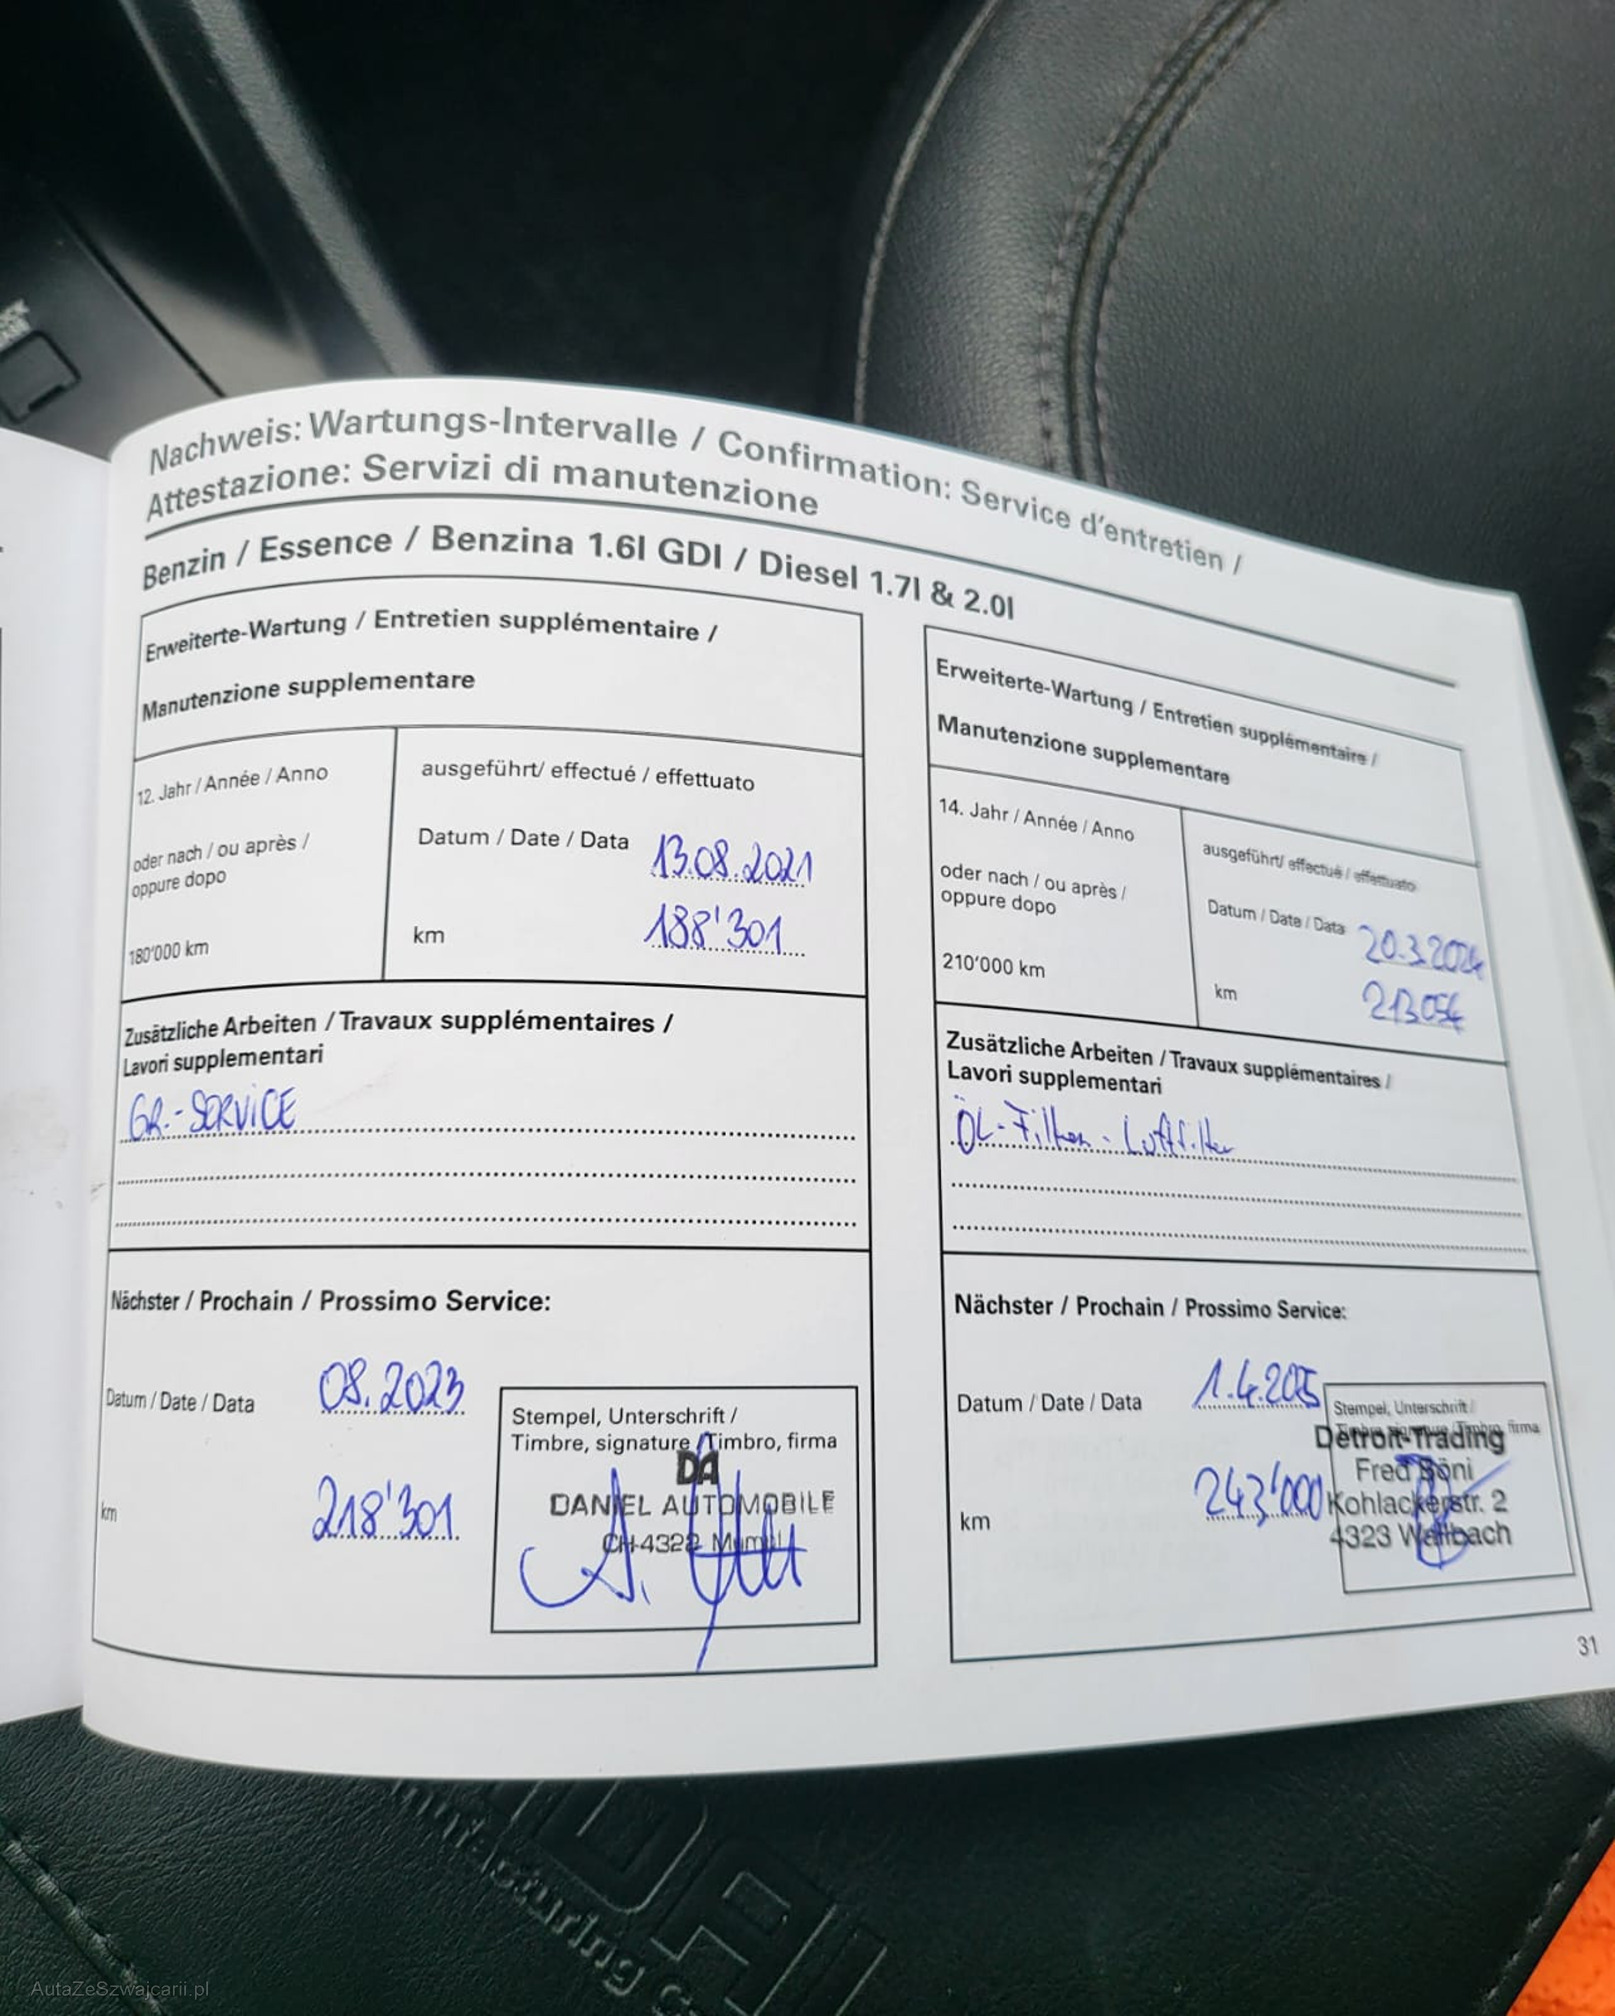 Nachweis: Wartungs-Intervalle / Confirmation: Service d'entretien /
Attestazione: Servizi di manutenzione
Benzin / Essence / Benzina 1.6l GDI / Diesel 1.7l & 2.0l
Erweiterte-Wartung / Entretien supplémentaire /
Manutenzione supplementare
12. Jahr / Année / Anno
oder nach / ou après /
oppure dopo
180'000 km
ausgeführt/ effectué / effettuato
Datum / Date / Data 13.08.2021
km 188'301
Zusätzliche Arbeiten / Travaux supplémentaires /
Lavori supplementari
GR.-SERVICE
Nächster / Prochain / Prossimo Service:
Datum / Date / Data 08.2023
km 218'301
Stempel, Unterschrift /
Timbre, signature / Timbro, firma
DA
DANIEL AUTOMOBILE
CH-4322
Erweiterte-Wartung / Entretien supplémentaire /
Manutenzione supplementare
14. Jahr / Année / Anno
oder nach / ou après /
oppure dopo
210'000 km
ausgeführt/ effectué / effettuato
Datum / Date / Data 20.3.2024
km 213054
Zusätzliche Arbeiten / Travaux supplémentaires /
Lavori supplementari
ÖL-Filter - Luftfilter
Nächster / Prochain / Prossimo Service:
Datum / Date / Data 1.4.2025
km 243'000
Stempel, Unterschrift /
Timbre, signature / Timbro, firma
Detroit-Trading
Fred Böni
Kohlackerstr. 2
4323 Wallbach
31
AutaZeSzwajcarii.pl